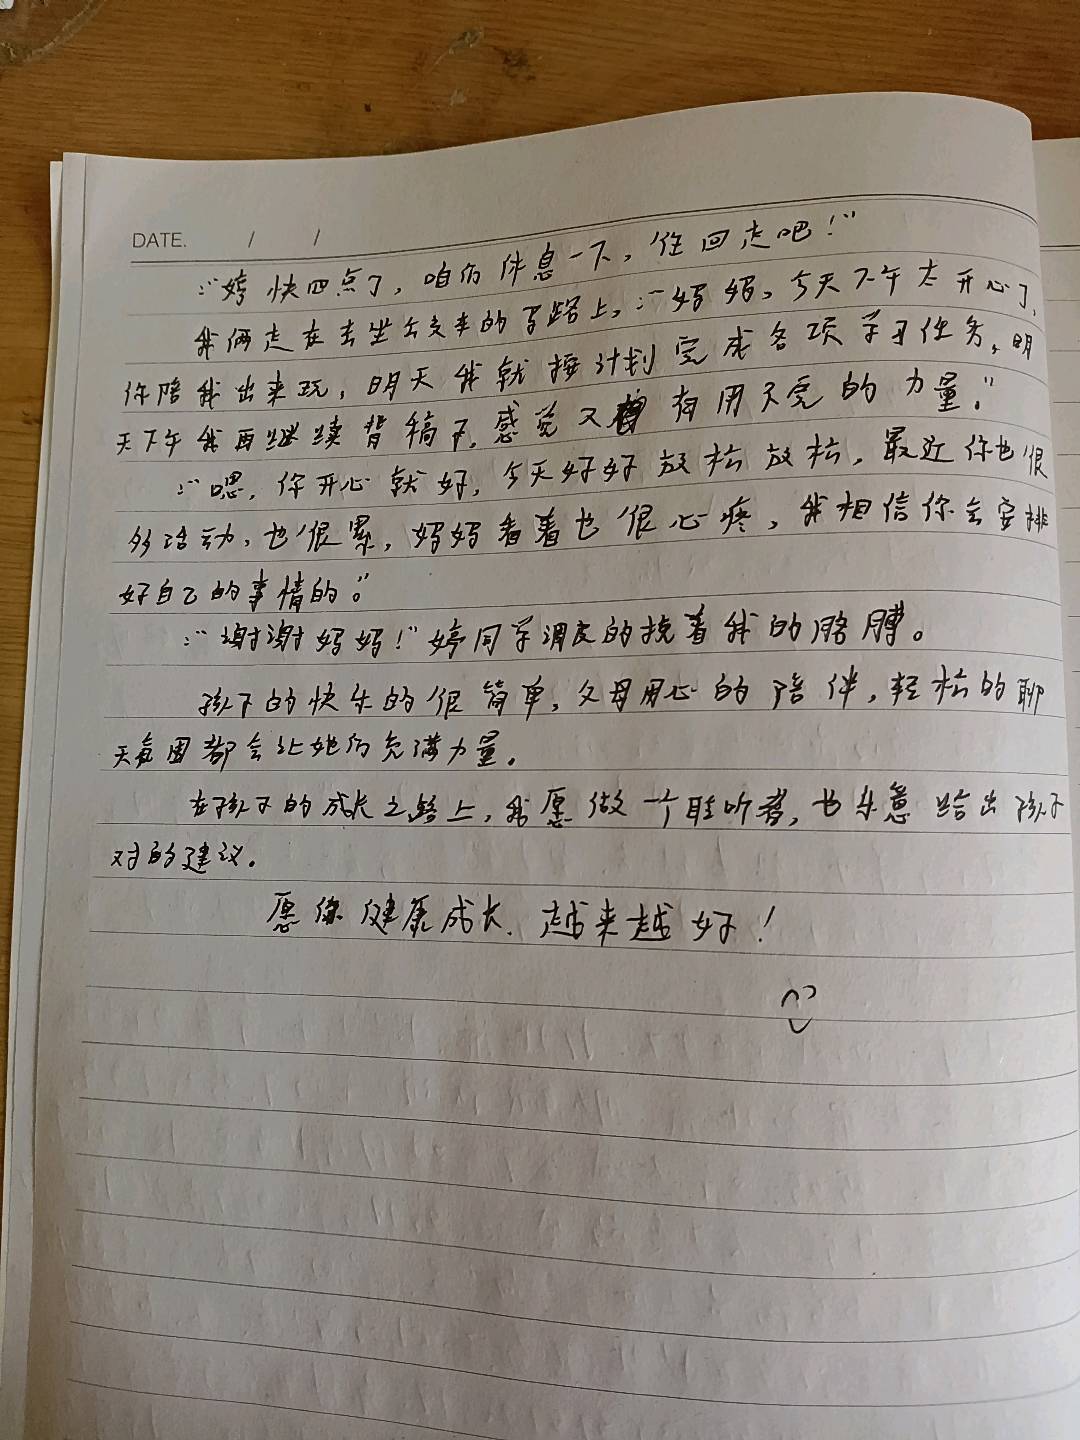 DATE. / /
:“婷 快四点了，咱们休息一下，往回走吧！”
我俩走在去坐公交车的马路上，:“妈妈，今天下午太开心了，
你陪我出来玩，明天我就按计划完成各项学习任务，明
天下午我再继续背稿子，感觉又有用不完的力量。”
:“嗯，你开心就好，今天好好放松放松，最近你也很
多活动，也很累，妈妈看着也很心疼，我相信你会安排
好自己的事情的。”
:“谢谢妈妈！”婷同学调皮的挽着我的胳膊。
孩子的快乐的很简单，父母用心的陪伴，轻松的聊
天氛围都会让她们充满力量。
在孩子的成长之路上，我愿做一个聆听者，也乐意给出孩子
对的建议。
愿你健康成长，越来越好！